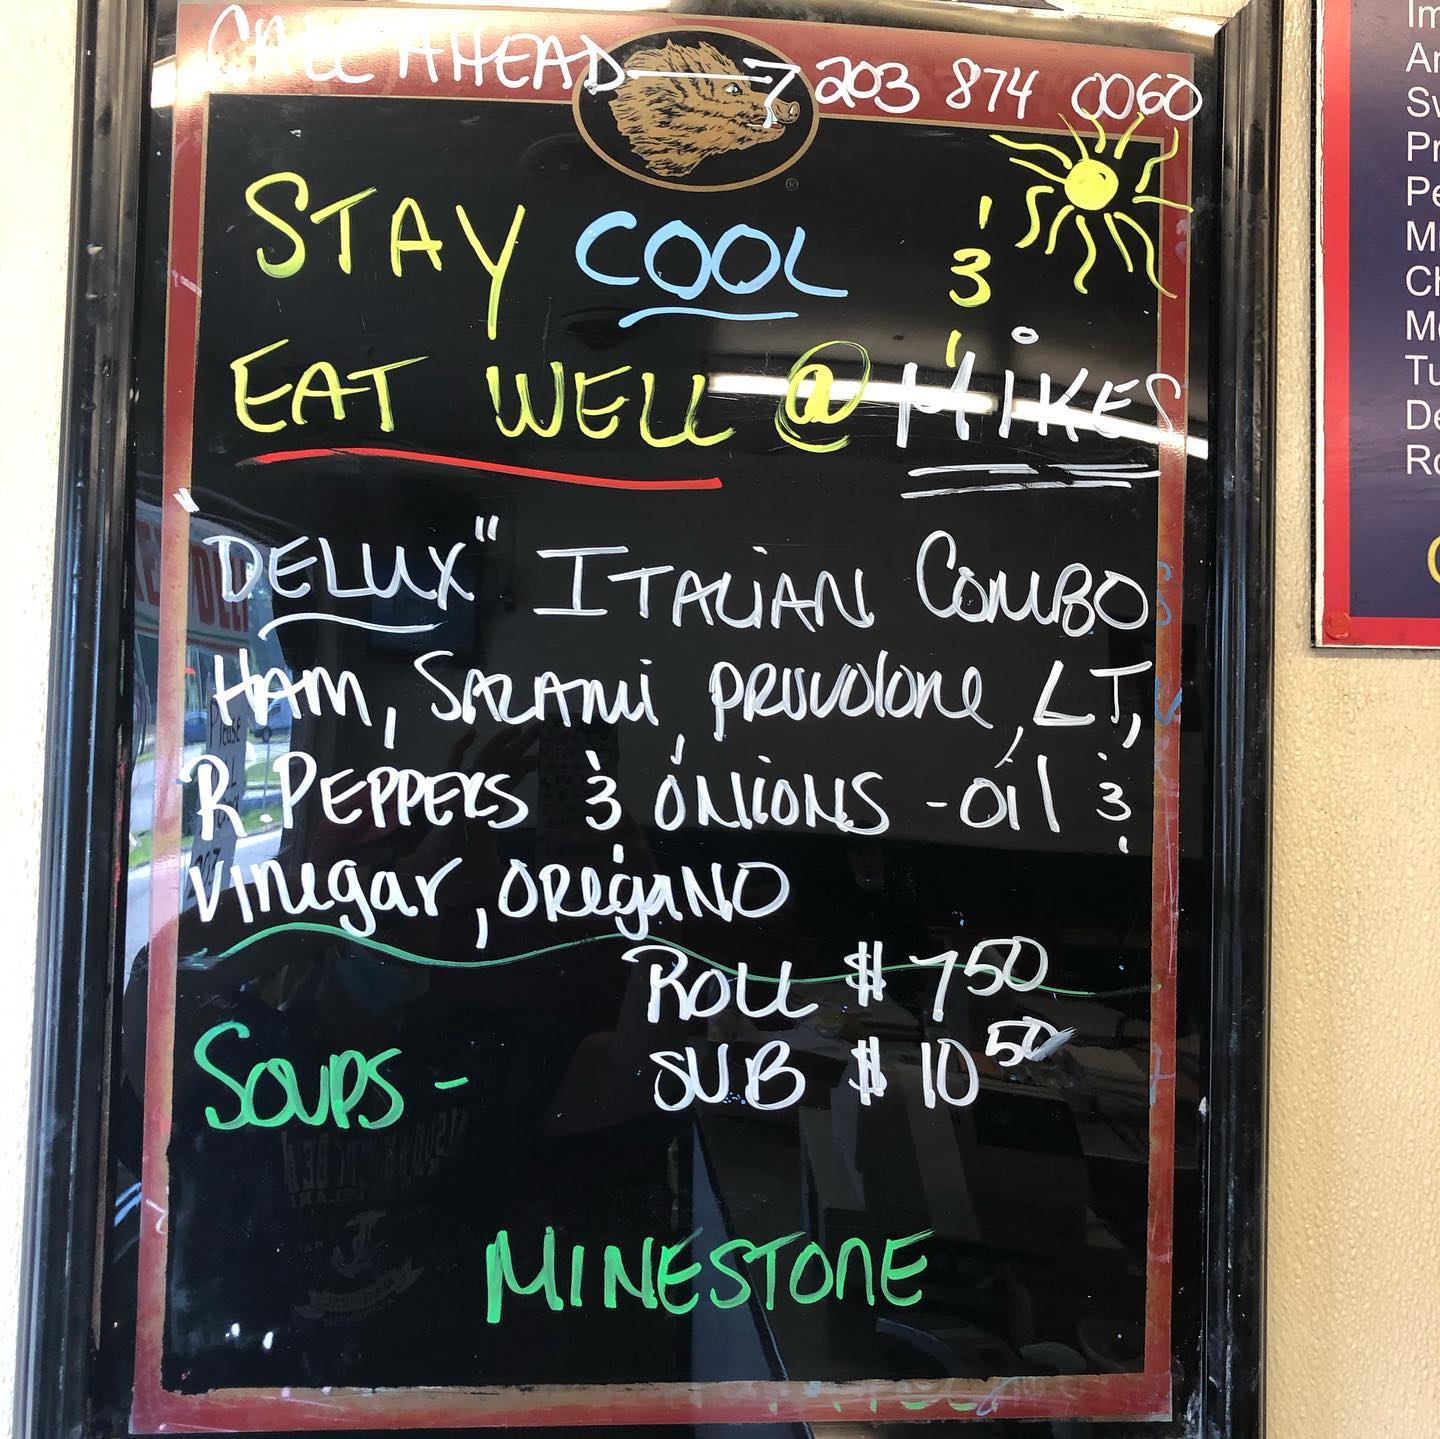 CALL AHEAD → 203 874 0060
STAY COOL &
EAT WELL @ MIKES
"DELUX" ITALIAN COMBO
HAM, SALAMI, PROVOLONE, LT,
R. PEPPERS & ONIONS - OIL &
VINEGAR, OREGANO
ROLL $ 7 50
SUB $ 10 50
SOUPS -
MINESTONE
®
Im
Ar
Sw
Pr
Pe
Mu
Ch
Me
Tu
De
Ro